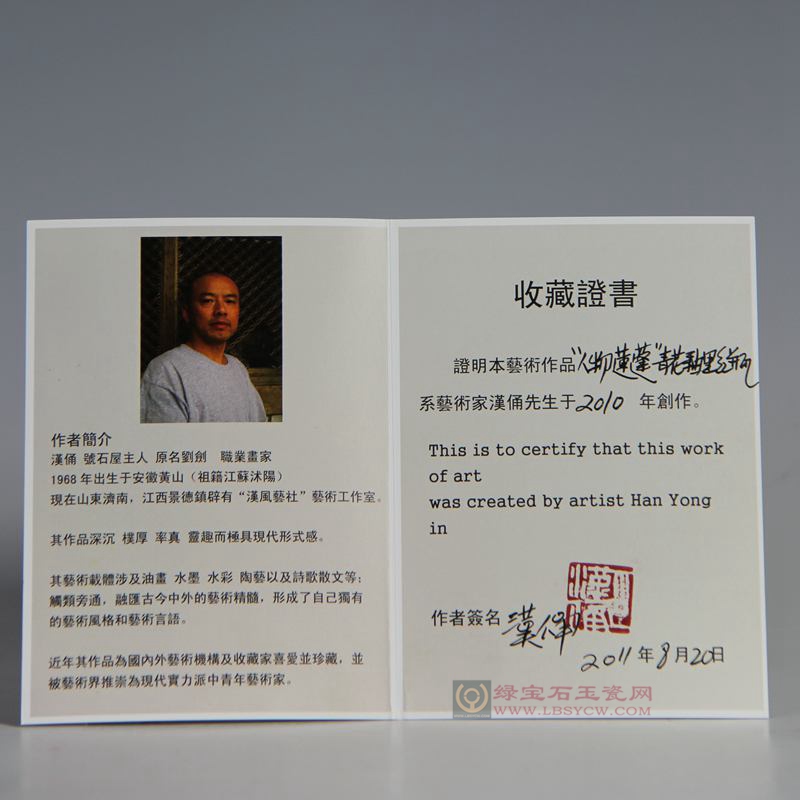 作者簡介
漢俑 號石屋主人 原名劉劍 職業畫家
1968年出生于安徽黃山（祖籍江蘇沭陽）
現在山東濟南，江西景德鎮辟有“漢風藝社”藝術工作室。
其作品深沉 樸厚 率真 靈趣而極具現代形式感。
其藝術載體涉及油畫 水墨 水彩 陶藝以及詩歌散文等；
觸類旁通，融匯古今中外的藝術精髓，形成了自己獨有
的藝術風格和藝術言語。
近年其作品為國內外藝術機構及收藏家喜愛並珍藏，並
被藝術界推崇為現代實力派中青年藝術家。
收藏證書
證明本藝術作品“人物
系藝術家漢俑先生于2010 年創作。
This is to certify that this work
of art
was created by artist Han Yong
in
作者簽名 漢俑
2011年8月20日
绿宝石玉瓷网
WWW.LBSYCW.COM